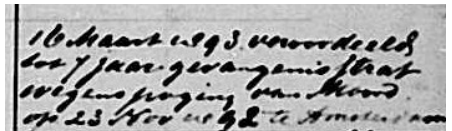 16 Maart 1893 veroordeeld
tot 7 jaar gevangenisstraf
wegens poging van Moord
op 23 Nov 1892 te Amsterdam